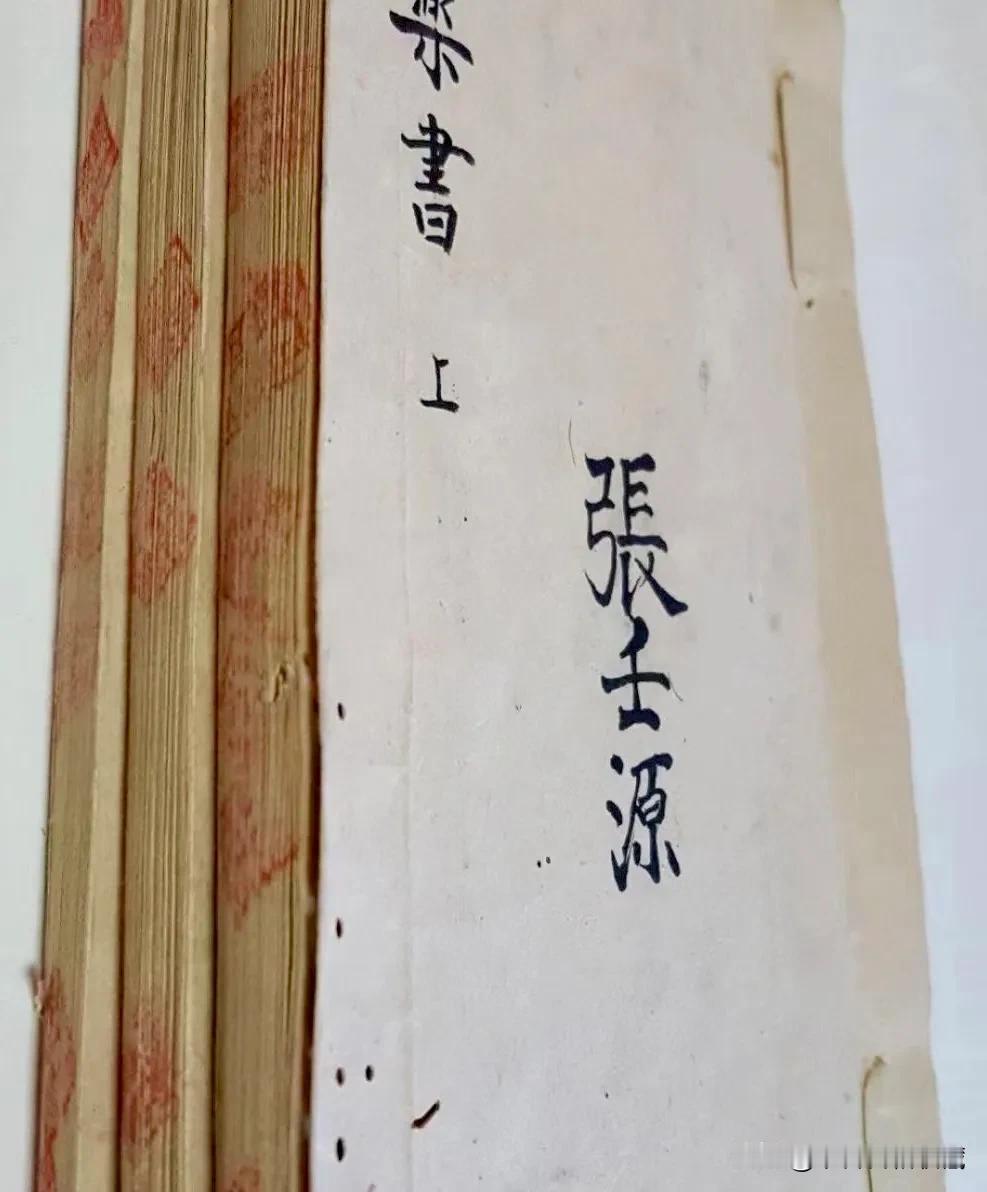 張壬源
書 上